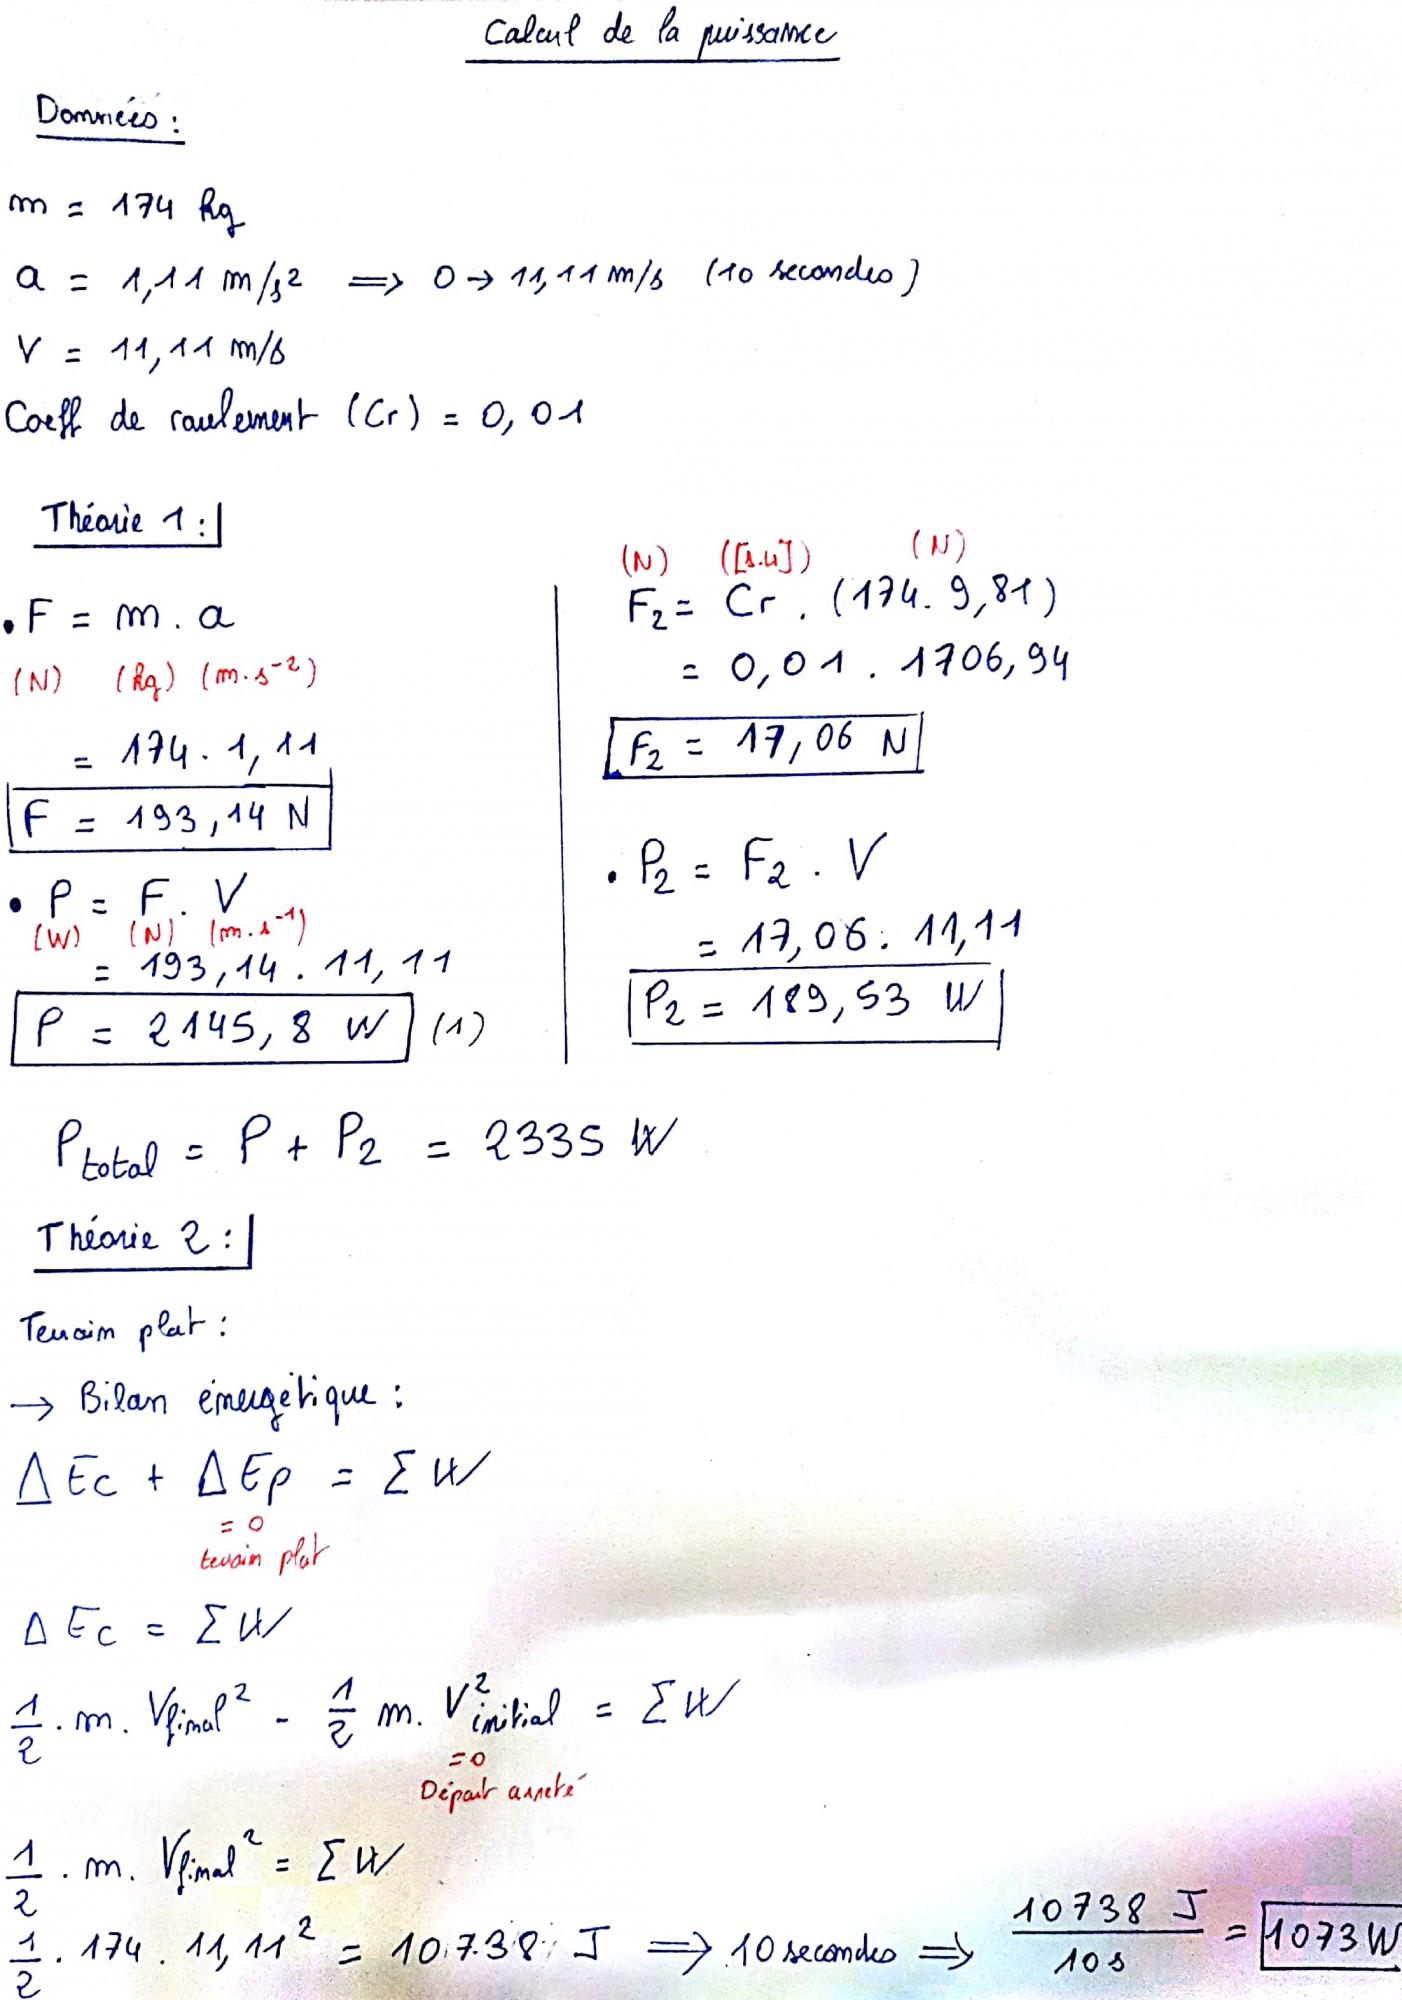 Calcul de la puissance
Données :
m = 174 kg
a = 1,11 m/s² => 0 → 11,11 m/s (10 secondes)
V = 11,11 m/s
Coeff de roulement (Cr) = 0,01
Théorie 1 :
• F = m . a
(N) (kg) (m.s⁻²)
= 174 . 1,11
F = 193,14 N
• P = F . V
(W) (N) (m.s⁻¹)
= 193,14 . 11,11
P = 2145,8 W (1)
(N) ([s.u]) (N)
F₂ = Cr . (174 . 9,81)
= 0,01 . 1706,94
F₂ = 17,06 N
• P₂ = F₂ . V
= 17,06 . 11,11
P₂ = 189,53 W
P total = P + P₂ = 2335 W
Théorie 2 :
Terrain plat :
→ Bilan énergétique :
Δ Ec + Δ Ep = Σ W
= 0
terrain plat
Δ Ec = Σ W
1/2 . m . Vfinal² - 1/2 m . V²initial = Σ W
= 0
Départ arreté
1/2 . m . Vfinal² = Σ W
1/2 . 174 . 11,11² = 10738 J => 10 secondes => 10738 J / 10 s = 1073 W